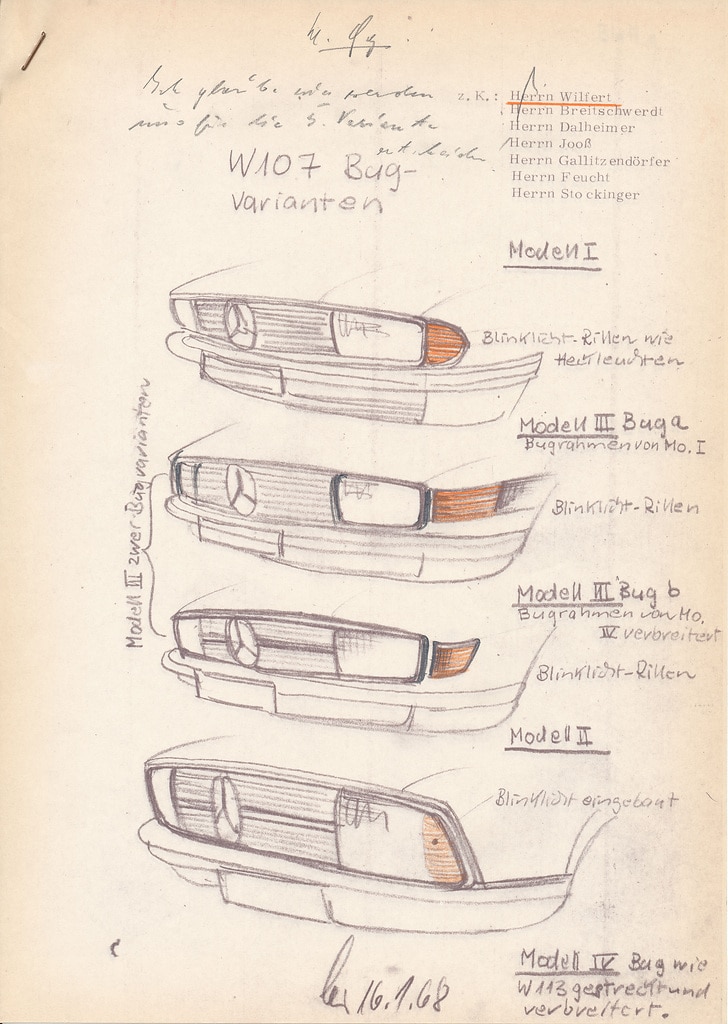 Ich glaube wir werden
uns für die 5. Variante
entscheiden
z. K.: Herrn Wilfert
Herrn Breitschwerdt
Herrn Dalheimer
Herrn Jooß
Herrn Gallitzendörfer
Herrn Feucht
Herrn Stockinger
W107 Bug-
Varianten
Modell I
Blinklicht-Rillen wie
Heckleuchten
Modell III Bug a
Bugrahmen von Mo. I
Blinklicht-Rillen
Modell III zwei Bugvarianten
Modell III Bug b
Bugrahmen von Mo.
IV verbreitert
Blinklicht-Rillen
Modell II
Blinklicht eingebaut
Modell IV Bug wie
W113 gestreckt und
verbreitert.
16.1.68